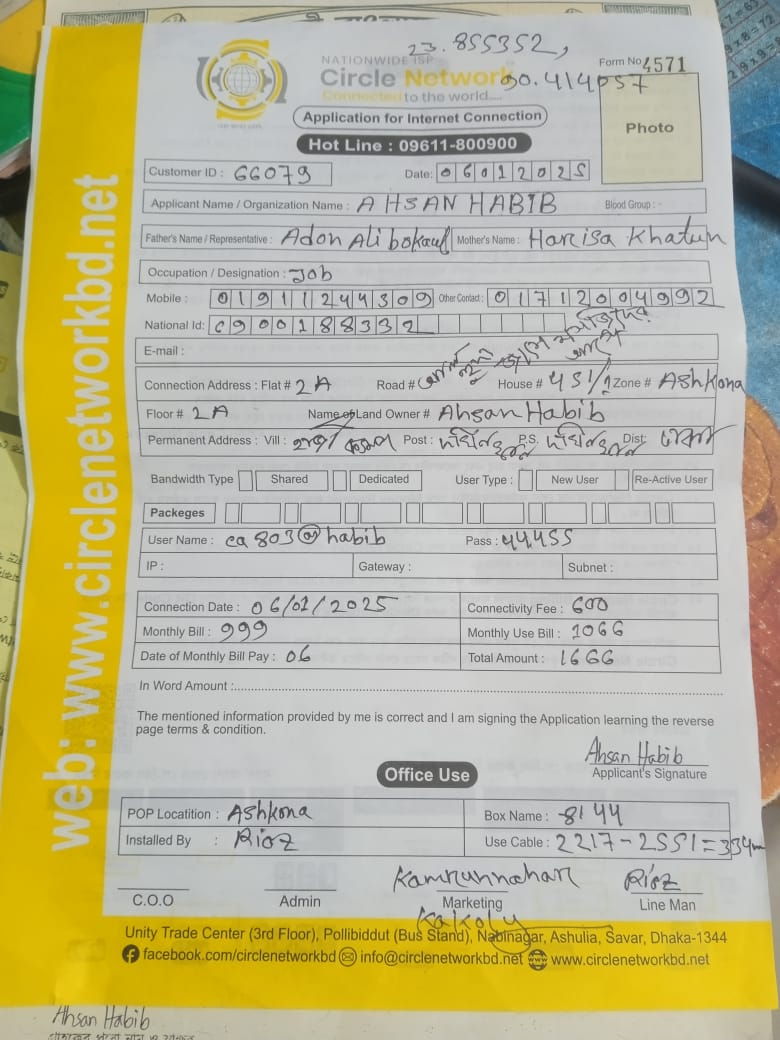 23.855352,
90.414057
NATIONWIDE ISP
Circle Network
Connected to the world....
Form No 4571
Photo
Application for Internet Connection
Hot Line : 09611-800900
Customer ID : 66079 Date: 06012025
Applicant Name / Organization Name : AHSAN HABIB Blood Group : -
Father's Name / Representative : Adon Ali bokaul Mother's Name : Harisa Khatun
Occupation / Designation : Job
Mobile : 01911244309 Other Contact : 01712004992
National Id: 6900188332
E-mail :
Connection Address : Flat # 2A Road # House # 431/1 Zone # Ashkona
Floor # 2A Name of Land Owner # Ahsan Habib
Permanent Address : Vill : Post : P.S. Dist:
Bandwidth Type Shared Dedicated User Type : New User Re-Active User
Packeges
User Name : ca803@habib Pass : 44455
IP : Gateway : Subnet :
Connection Date : 06/01/2025 Connectivity Fee : 600
Monthly Bill : 999 Monthly Use Bill : 1066
Date of Monthly Bill Pay : 06 Total Amount : 1666
In Word Amount :
The mentioned information provided by me is correct and I am signing the Application learning the reverse
page terms & condition.
Ahsan Habib
Applicant's Signature
Office Use
POP Locatition : Ashkona Box Name : 8144
Installed By : Rioz Use Cable : 2217-2551=334m
Kamrunnahar Rioz
C.O.O Admin Marketing Line Man
Kakoly
Unity Trade Center (3rd Floor), Pollibiddut (Bus Stand), Nabinagar, Ashulia, Savar, Dhaka-1344
facebook.com/circlenetworkbd info@circlenetworkbd.net www.circlenetworkbd.net
web: www.circlenetworkbd.net
Ahsan Habib